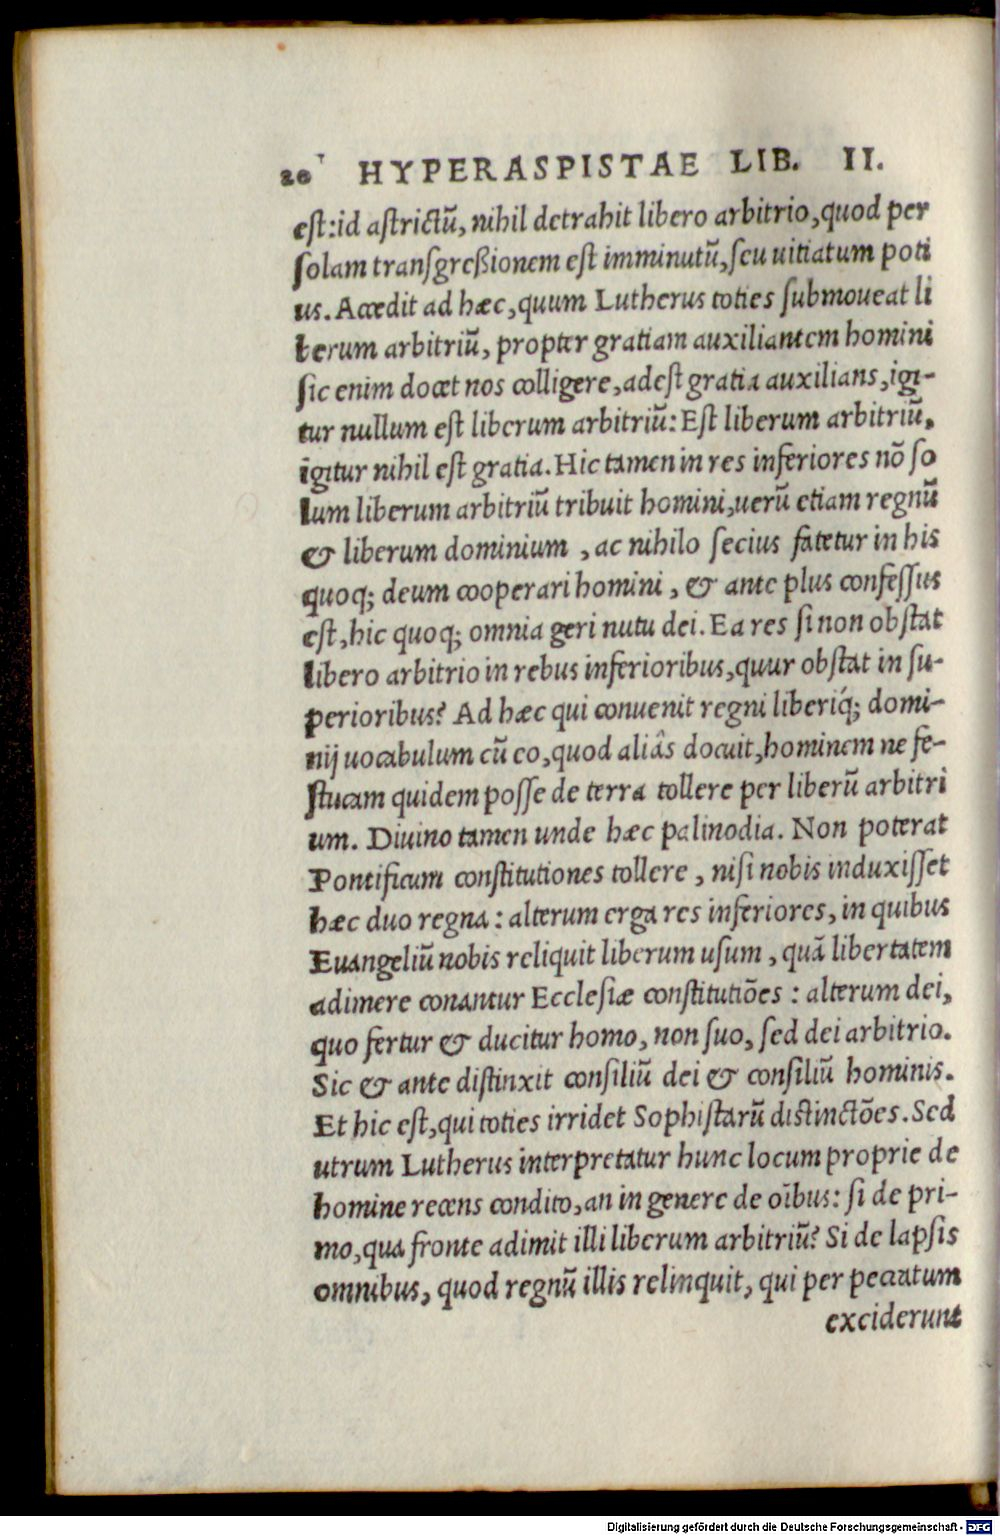 20 HYPERASPISTAE LIB. II.
eſt: id aſtrictū, nihil detrahit libero arbitrio, quod per
ſolam tranſgreßionem eſt imminutū, ſeu uitiatum poti
us. Accedit ad hæc, quum Lutherus toties ſubmoueat li
berum arbitriū, propter gratiam auxiliantem homini
ſic enim docet nos colligere, adeſt gratia auxilians, igi-
tur nullum eſt liberum arbitriū: Eſt liberum arbitriū,
igitur nihil eſt gratia. Hic tamen in res inferiores nō ſo
lum liberum arbitriū tribuit homini, uerū etiam regnū
& liberum dominium, ac nihilo ſecius fatetur in his
quoq; deum cooperari homini, & ante plus confeſſus
eſt, hic quoq; omnia geri nutu dei. Ea res ſi non obſtat
libero arbitrio in rebus inferioribus, quur obſtat in ſu-
perioribus? Ad hæc qui conuenit regni liberiq́; domi-
nij uocabulum cū eo, quod aliâs docuit, hominem ne fe-
ſtucam quidem poſſe de terra tollere per liberū arbitri
um. Diuino tamen unde hæc palinodia. Non poterat
Pontificum conſtitutiones tollere, niſi nobis induxiſſet
hæc duo regna: alterum erga res inferiores, in quibus
Euangeliū nobis reliquit liberum uſum, quā libertatem
adimere conantur Eccleſiæ conſtitutiōes: alterum dei,
quo fertur & ducitur homo, non ſuo, ſed dei arbitrio.
Sic & ante diſtinxit conſiliū dei & conſiliū hominis.
Et hic eſt, qui toties irridet Sophiſtarū diſtinctōes. Sed
utrum Lutherus interpretatur hunc locum proprie de
homine recens condito, an in genere de oībus: ſi de pri-
mo, qua fronte adimit illi liberum arbitriū? Si de lapſis
omnibus, quod regnū illis relinquit, qui per peccatum
exciderunt
Digitalisierung gefördert durch die Deutsche Forschungsgemeinschaft - DFG